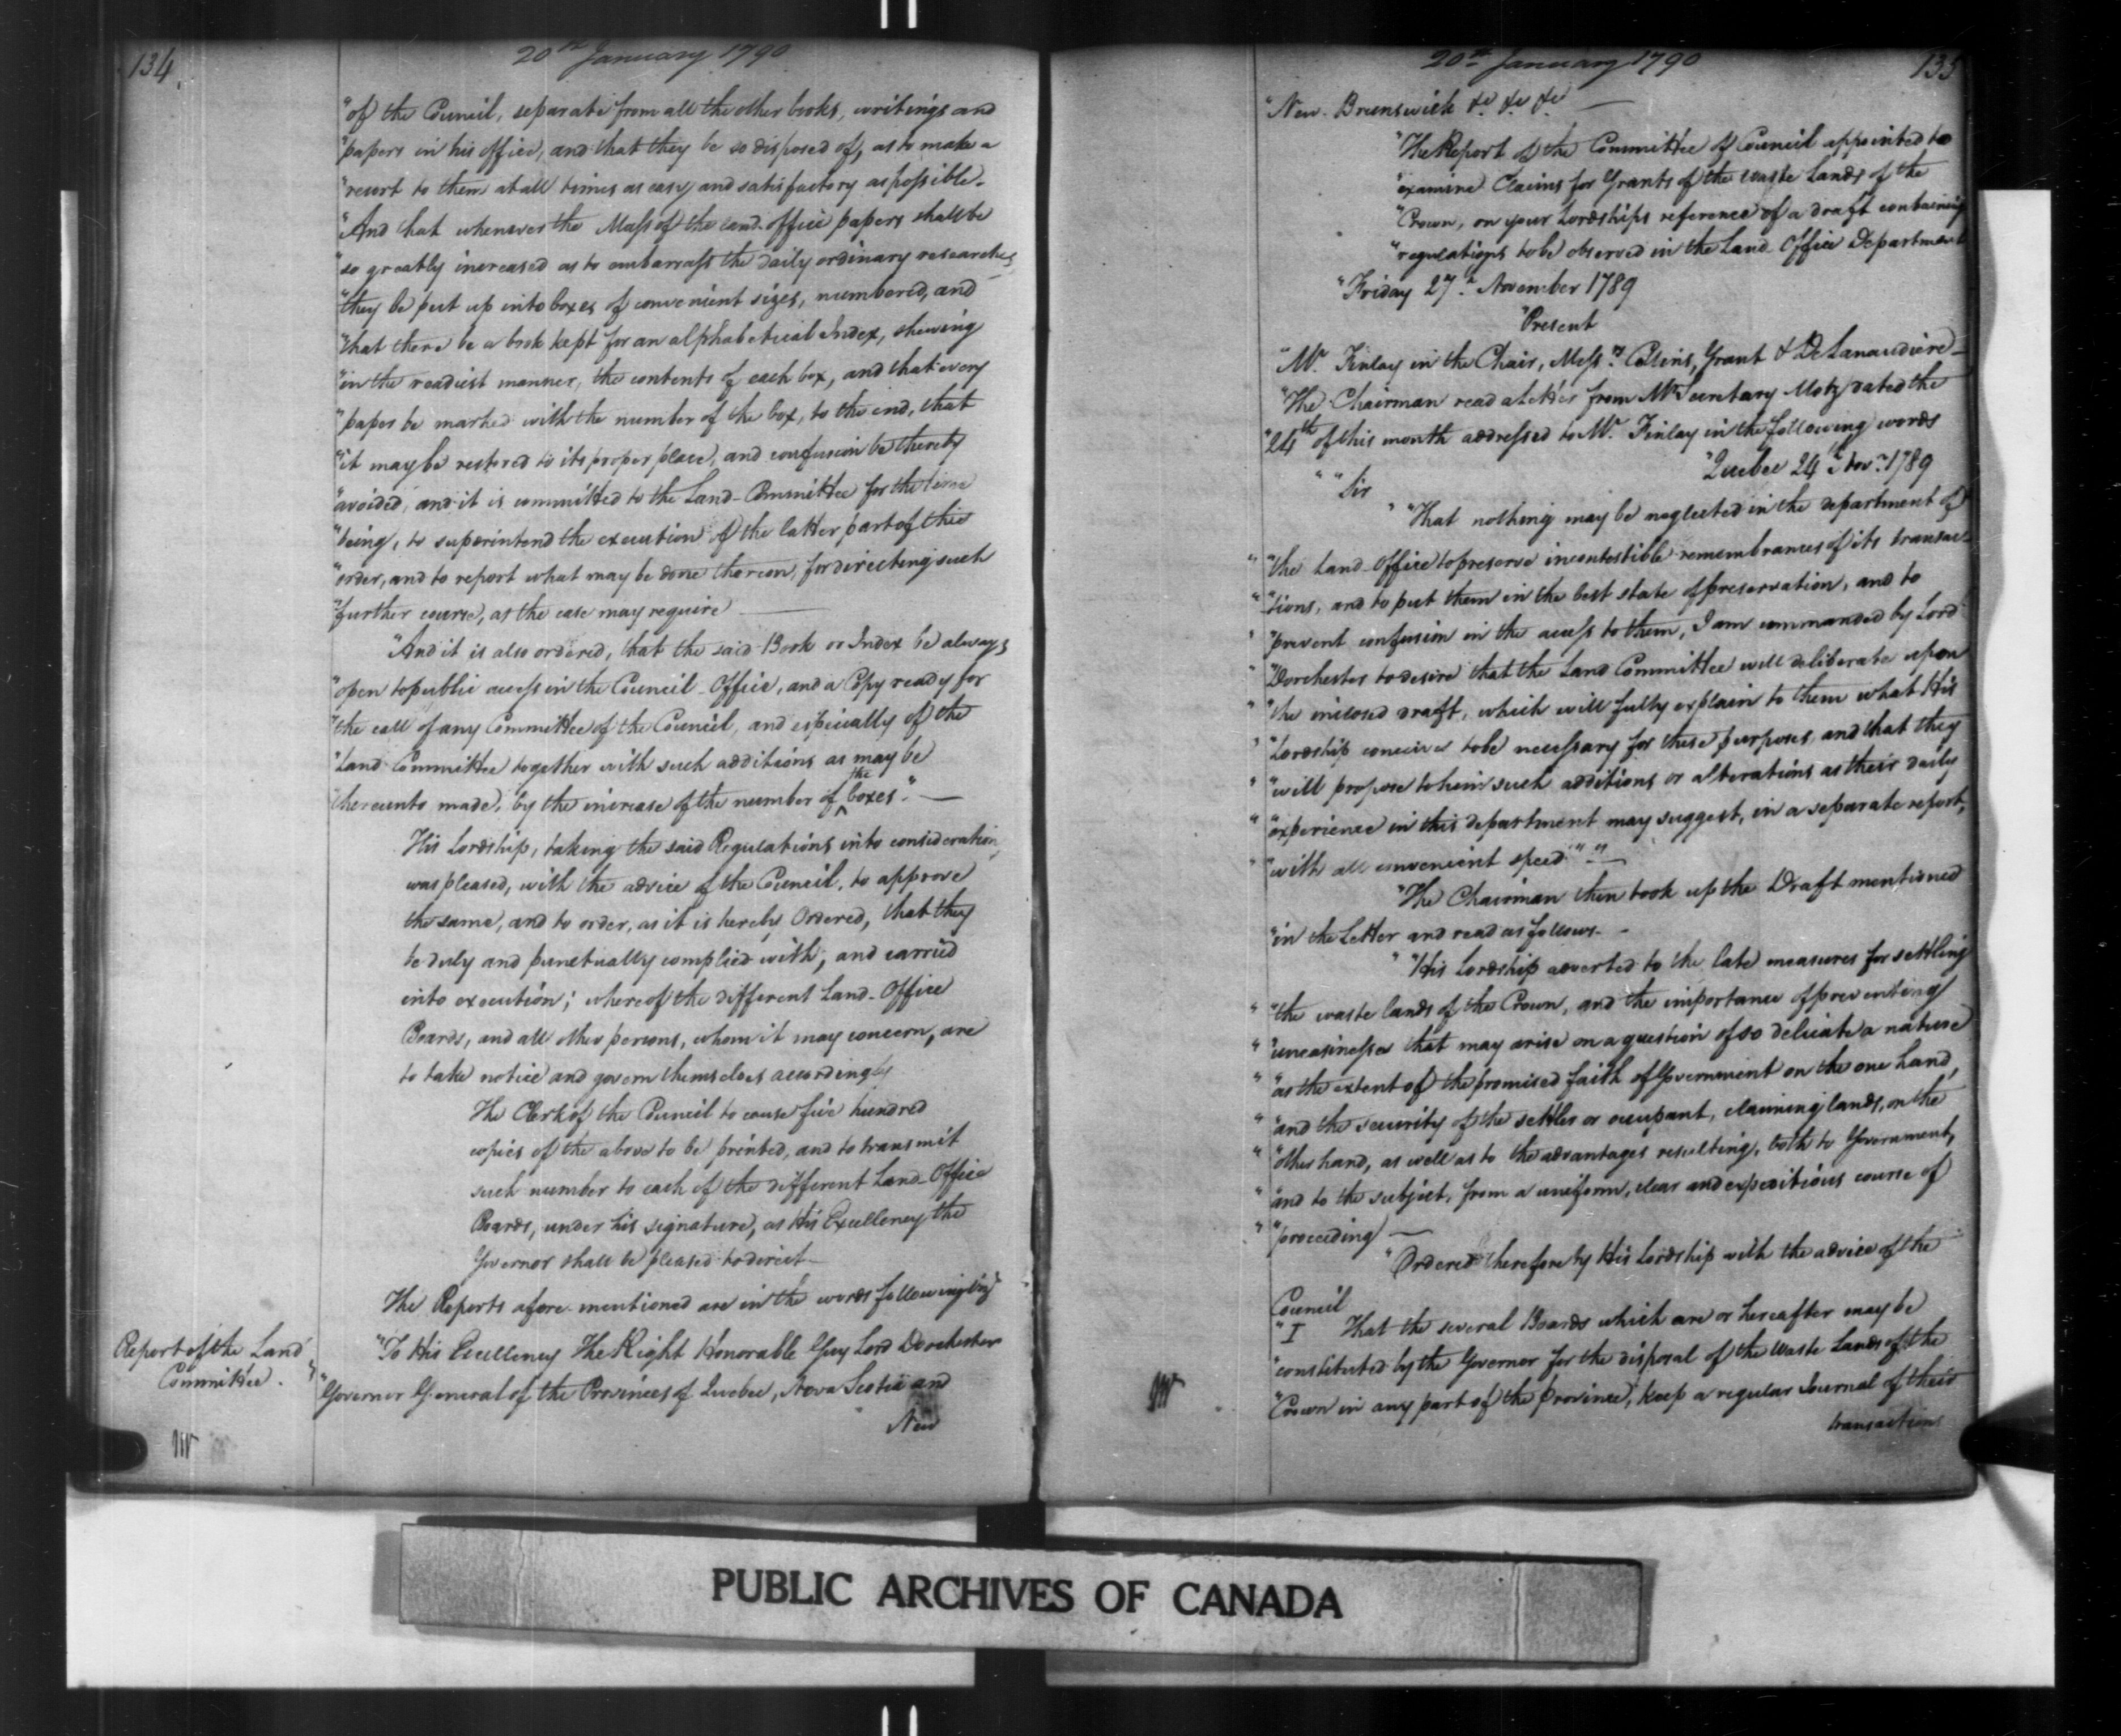 134.
20th January 1790
"of the Council, separate from all the other books, writings and
"papers in his office, and that they be so disposed of, as to make a
"resort to them at all times as easy and satisfactory as possible.
"And that whenever the Mass of the Land-office papers shall be
"so greatly increased as to embarrass the daily ordinary researches,
"they be put up into boxes of convenient sizes, numbered, and
"that there be a book kept for an alphabetical Index, shewing
"in the readiest manner, the contents of each box, and that every
"paper be marked with the number of the box, to the end, that
"it may be restored to its proper place, and confusion be thereby
"avoided, and it is committed to the Land-Committee for the time
"being, to superintend the execution of the latter part of this
"order, and to report what may be done thereon, for directing such
"further course, as the case may require —
"And it is also ordered, that the said Book or Index be always
"open to public access in the Council Office, and a Copy ready for
"the call of any Committee of the Council, and especially of the
"Land Committee together with such additions as may be
"thereunto made, by the increase of the number of the boxes". —
His Lordship, taking the said Regulations into consideration,
was pleased, with the advice of the Council, to approve
the same, and to order, as it is hereby Ordered, that they
be duly and punctually complied with, and carried
into execution; whereof the different Land-Office
Boards, and all other persons, whom it may concern, are
to take notice and govern themselves accordingly
The Clerk of the Council to cause five hundred
copies of the above to be printed, and to transmit
such number to each of the different Land-Office
Boards, under his signature, as His Excellency the
Governor shall be pleased to direct —
The Reports afore-mentioned are in the words following viz.
Report of the Land
Committee.
"To His Excellency The Right Honorable Guy Lord Dorchester
"Governor General of the Provinces of Quebec, Nova Scotia and
New
20th January 1790
135
"New-Brunswick &c &c &c —
"The Report of the Committee of Council appointed to
"examine Claims for Grants of the waste Lands of the
"Crown, on your Lordships reference of a draft containing
"regulations to be observed in the Land-Office Department
"Friday 27th November 1789
"Present
"Mr. Finlay in the Chair, Messrs. Collins, Grant & DeLanaudiere —
"The Chairman read a Letter from Mr Secretary Motz dated the
"24th of this month addressed to Mr. Finlay in the following words
"Quebec 24th Novr. 1789
" "Sir
" "That nothing may be neglected in the department of
" "the Land-Office to preserve incontestible remembrances of its transac-
" "tions, and to put them in the best state of preservation, and to
" "prevent confusion in the access to them, I am commanded by Lord
" "Dorchester to desire that the Land Committee will deliberate upon
" "the inclosed draft, which will fully explain to them what His
" "Lordship conceives to be necessary for these purposes, and that they
" "will propose to him such additions or alterations as their daily
" "experience in this department may suggest, in a separate report,
" "with all convenient speed" " —
"The Chairman then took up the Draft mentioned
"in the Letter and read as follows. —
" "His Lordship adverted to the late measures for settling
" "the waste lands of the Crown, and the importance of preventing
" "uneasinesses that may arise on a question of so delicate a nature
" "as the extent of the promised faith of Government on the one hand,
" "and the security of the settler or occupant, claiming lands, on the
" "other hand, as well as to the advantages resulting, both to Government,
" "and to the subject, from a uniform, clear and expeditious course of
" "proceeding —
"Ordered therefore by His Lordship with the advice of the
Council
"I That the several Boards which are or hereafter may be
"constituted by the Governor for the disposal of the Waste Lands of the
"Crown in any part of the Province, keep a regular Journal of their
transactions
PUBLIC ARCHIVES OF CANADA